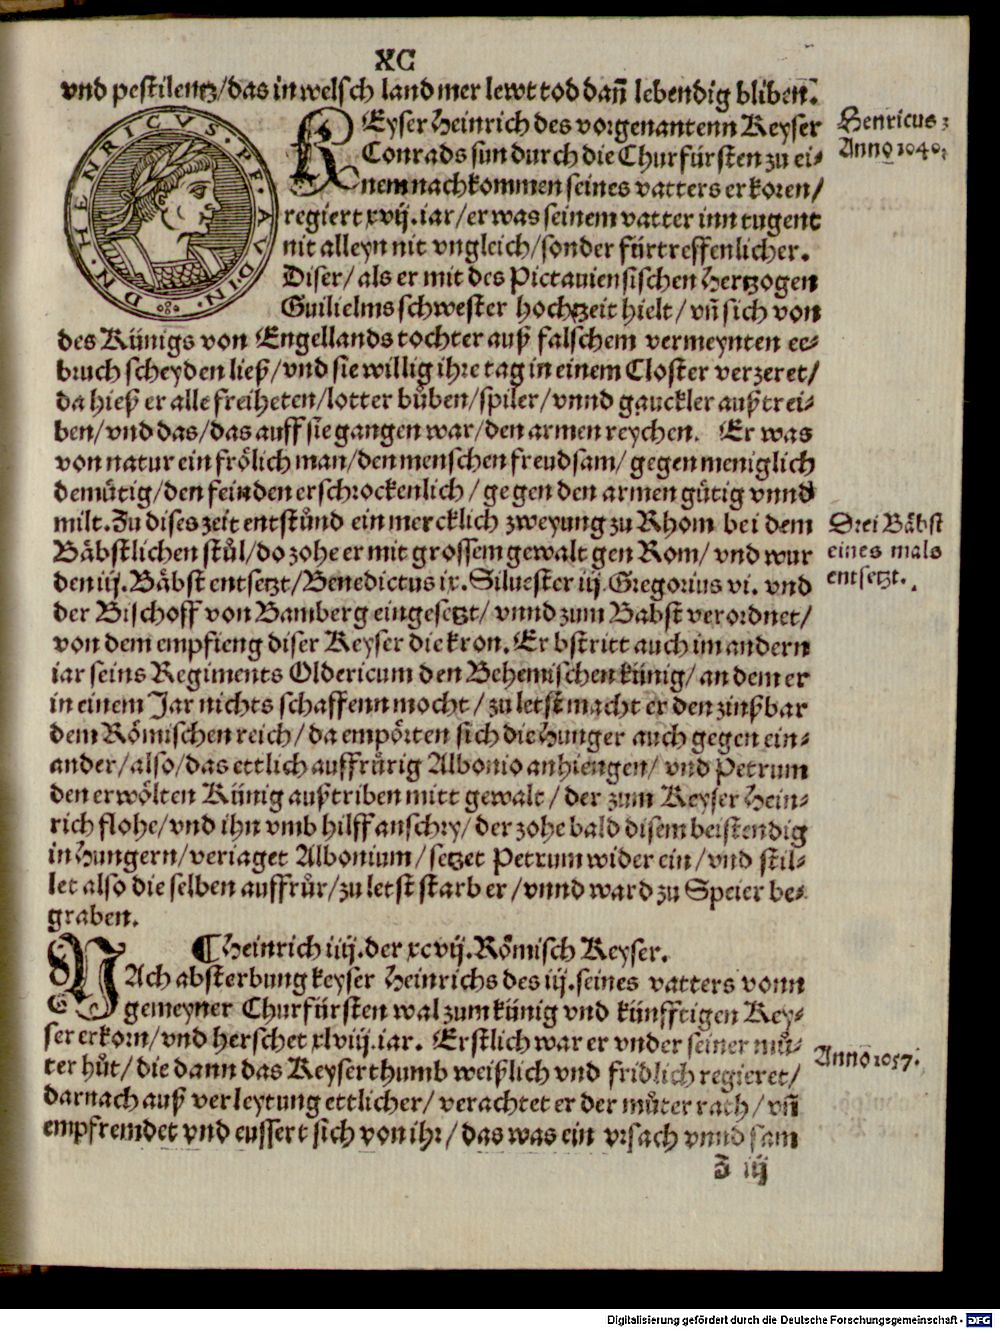 XC
vnd pestilentz/das in welsch land mer lewt tod dañ lebendig bliben.
HENRICVS·PF·AV
DIN·
DN·HENRICVS
KEyser Heinrich des vorgenantenn Keyser
Conrads sun durch die Churfürsten zu ei⸗
nem nachkommen seines vatters erkoren/
regiert xvij.iar/er was seinem vatter inn tugent
nit alleyn nit vngleich/sonder fürtreffenlicher.
Diser/als er mit des Pictauiensischen Hertzogen
Guilielms schwester hochtzeit hielt/vñ sich von
des Künigs von Engellands tochter auß falschem vermeynten ee⸗
bruch scheyden ließ/vnd sie willig ihre tag in einem Closter verzeret/
da hieß er alle freiheten/lotter bůben/spiler/vnnd gauckler außtrei⸗
ben/vnd das/das auff sie gangen war/den armen reychen. Er was
von natur ein frölich man/den menschen freudsam/gegen meniglich
demütig/den feinden erschrockenlich/gegen den armen gütig vnnd
milt. Zu dises zeit entstůnd ein mercklich zweyung zu Rhom bei dem
Bäbstlichen stůl/do zohe er mit grossem gewalt gen Rom/vnd wur
den iij. Bäbst entsetzt/Benedictus ix. Siluester iij. Gregorius vi. vnd
der Bischoff von Bamberg eingesetzt/vnnd zum Babst verordnet/
von dem empfieng diser Keyser die kron. Er bstritt auch im andern
iar seins Regiments Oldericum den Behemischen künig/an dem er
in einem Jar nichts schaffenn mocht/zu letst macht er den zinßbar
dem Römischen reich/da empörten sich die Hunger auch gegen ein⸗
ander/also/das ettlich auffrůrig Albonio anhiengen/vnd Petrum
den erwölten Künig außtriben mitt gewalt/der zum Keyser Hein⸗
rich flohe/vnd ihn vmb hilff anschry/der zohe bald disem beistendig
in Hungern/veriaget Albonium/setzet Petrum wider ein/vnd stil⸗
let also die selben auffrůr/zu letst starb er/vnnd ward zu Speier be⸗
graben.
¶Heinrich iiij. der xcvij. Römisch Keyser.
NAch absterbung keyser Heinrichs des iij. seines vatters vonn
gemeyner Churfürsten wal zum künig vnd künfftigen Key⸗
ser erkorn/vnd herschet xlviij.iar. Erstlich war er vnder seiner mů⸗
ter hůt/die dann das Keyserthumb weißlich vnd fridlich regieret/
darnach auß verleytung ettlicher/verachtet er der můter rath/vñ
empfremdet vnd eussert sich von ihr/das was ein vrsach vnnd sam
Z iij
Henricus 3
Anno 1040.
Drei Bäbst
eines mals
entsetzt.
Anno 1057.
Digitalisierung gefördert durch die Deutsche Forschungsgemeinschaft - DFG